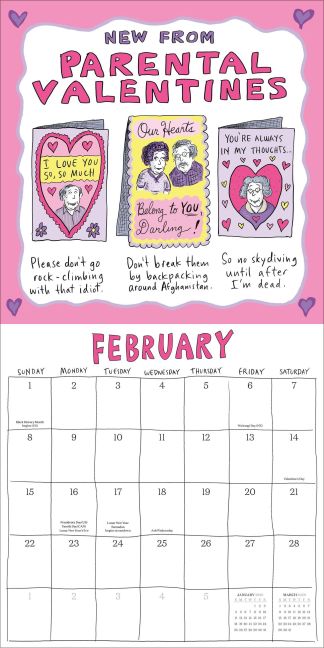 NEW FROM
PARENTAL
VALENTINES
I LOVE YOU
SO, SO MUCH
Our Hearts
Belong to YOU,
Darling!
YOU'RE ALWAYS
IN MY THOUGHTS...
Please don't go
rock-climbing
with that idiot.
Don't break them
by backpacking
around Afghanistan.
So no skydiving
until after
I'm dead.
FEBRUARY
SUNDAY MONDAY TUESDAY WEDNESDAY THURSDAY FRIDAY SATURDAY
1 2 3 4 5 6 7
Black History Month
begins (US)
Waitangi Day (NZ)
8 9 10 11 12 13 14
Valentine's Day
15 16 17 18 19 20 21
Presidents' Day (US)
Family Day (CAN)
Lunar New Year's Eve
Lunar New Year
Ramadan
begins at sundown
Ash Wednesday
22 23 24 25 26 27 28
1 2 3 4 5
JANUARY
MARCH